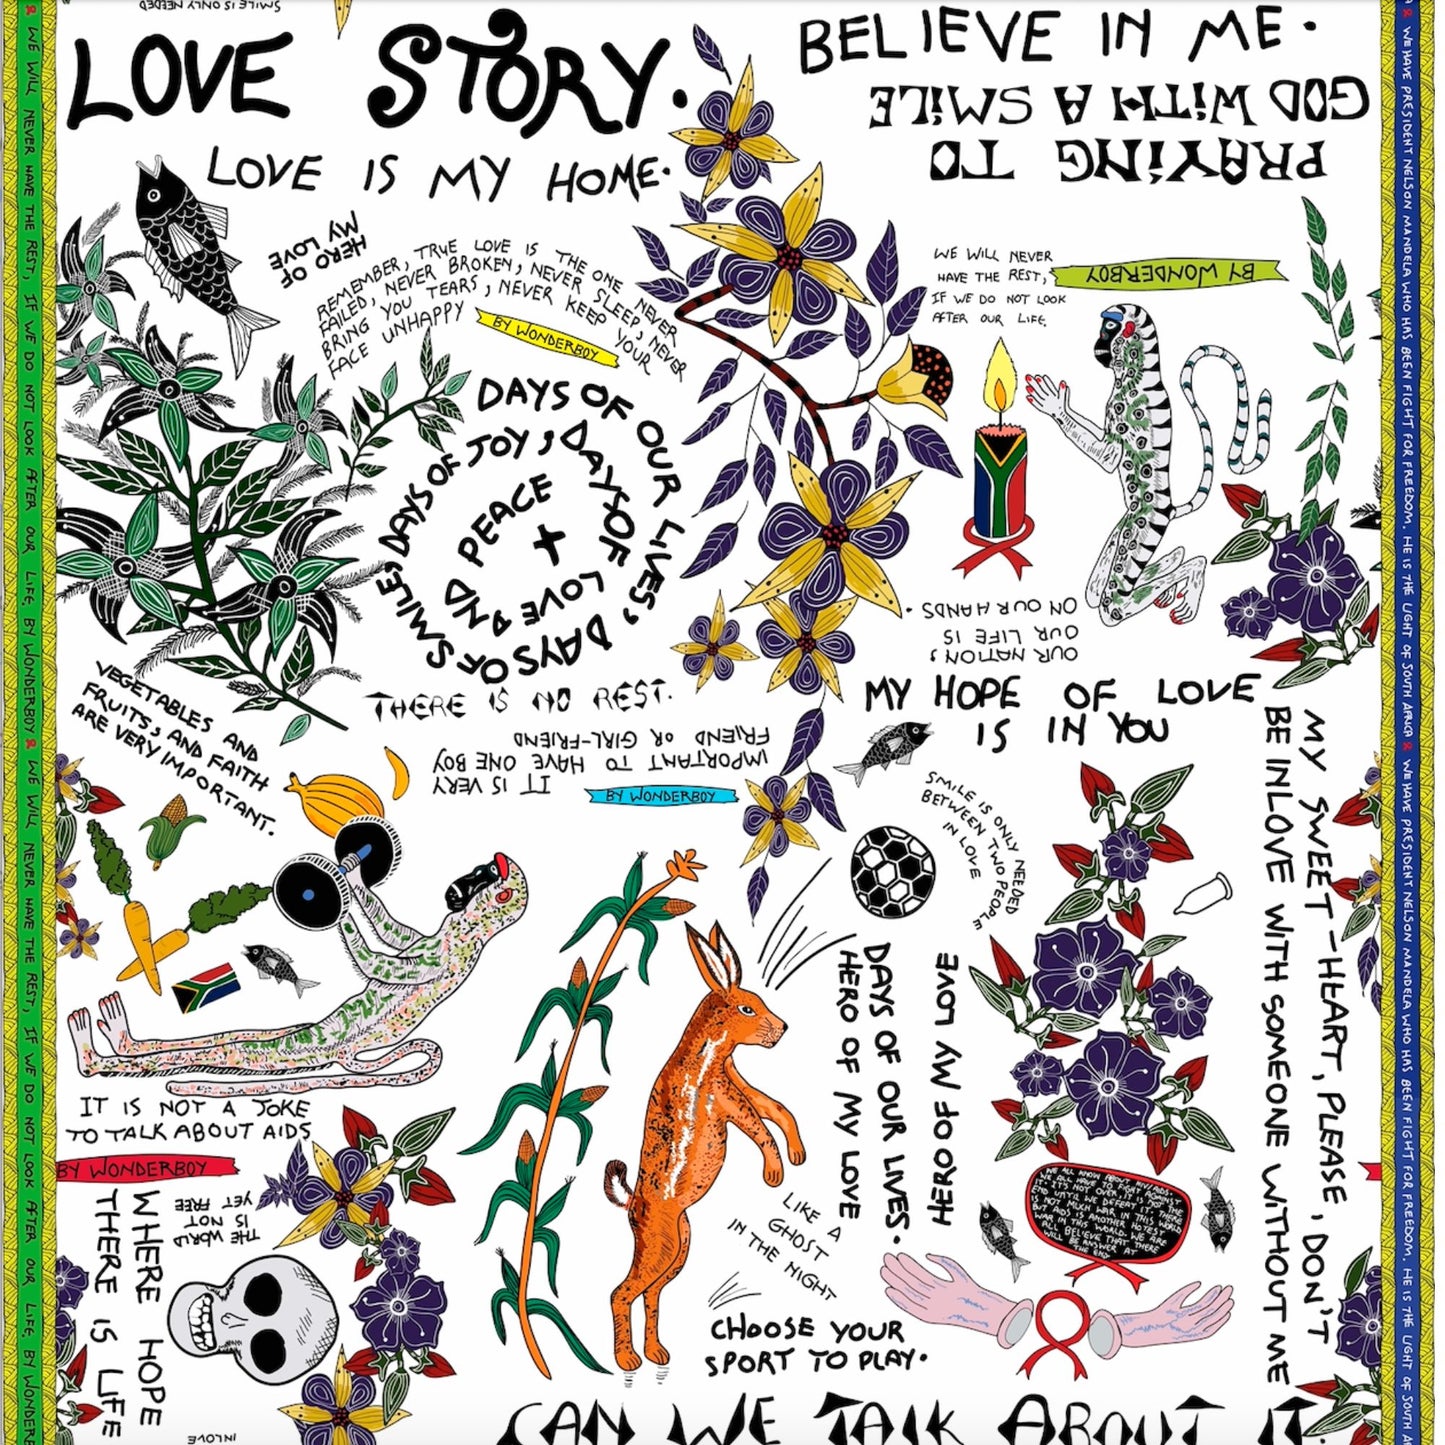 SMILE IS ONLY NEEDED
LOVE STORY.
LOVE IS MY HOME.
HERO OF
MY LOVE
REMEMBER, TRUE LOVE IS THE ONE NEVER
FAILED, NEVER BROKEN, NEVER SLEEP, NEVER
BRING YOU TEARS, NEVER KEEP YOUR
FACE UNHAPPY
BY WONDERBOY
DAYS OF OUR LIVES, DAYS OF SMILE, DAYS OF JOY, DAYS OF LOVE AND PEACE
THERE IS NO REST.
IT IS VERY
IMPORTANT TO HAVE ONE BOY
FRIEND OR GIRL-FRIEND
BY WONDERBOY
BELIEVE IN ME.
PRAYING TO
GOD WITH A SMILE
WE WILL NEVER
HAVE THE REST,
IF WE DO NOT LOOK
AFTER OUR LIFE.
BY WONDERBOY
OUR NATION,
OUR LIFE IS
ON OUR HANDS.
MY HOPE OF LOVE
IS IN YOU
SMILE IS ONLY NEEDED
BETWEEN TWO PEOPLE
IN LOVE
MY SWEET-HEART, PLEASE, DON'T
BE INLOVE WITH SOMEONE WITHOUT ME
VEGETABLES AND
FRUITS, AND FAITH
ARE VERY IMPORTANT.
IT IS NOT A JOKE
TO TALK ABOUT AIDS
BY WONDERBOY
WHERE HOPE
THERE IS LIFE
THE WORLD
IS NOT
YET FREE
DAYS OF OUR LIVES.
HERO OF MY LOVE
HERO OF MY LOVE
LIKE A
GHOST
IN THE NIGHT
CHOOSE YOUR
SPORT TO PLAY.
WE ALL KNOW ABOUT HIV/AIDS.
WE ALL HAVE TO FIGHT AGAINST
IT'S NOT OVER, IT'S NOT THE
END UNTIL WE DEFEAT IT. THERE
IS NO SUCH WAR IN THIS WORLD
BUT AIDS IS ANOTHER HOTEST
WAR IN THIS WORLD. WE ARE
ALL BELIEVE THAT THERE
WILL BE ANSWER AT
THE END
INLOVE
CAN WE TALK ABOUT IT.
& WE WILL NEVER HAVE THE REST, IF WE DO NOT LOOK AFTER OUR LIFE. BY WONDERBOY & WE WILL NEVER HAVE THE REST, IF WE DO NOT LOOK AFTER OUR LIFE. BY WONDERB
& WE HAVE PRESIDENT NELSON MANDELA WHO HAS BEEN FIGHT FOR FREEDOM. HE IS THE LIGHT OF SOUTH AFRICA & WE HAVE PRESIDENT NELSON MANDELA WHO HAS BEEN FIGHT FOR FREEDOM. HE IS THE LIGHT OF SOUTH A